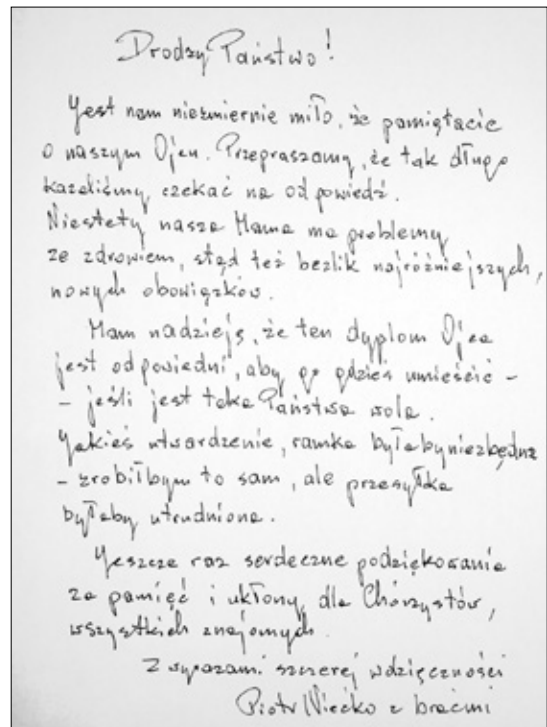 Drodzy Państwo!
Jest nam niezmiernie miło, że pamiętacie
o naszym Ojcu. Przepraszamy, że tak długo
kazaliśmy czekać na odpowiedź.
Niestety nasza Mama ma problemy
ze zdrowiem, stąd też bezlik najróżniejszych,
nowych obowiązków.
Mam nadzieję, że ten dyplom Ojca
jest odpowiedni, aby go gdzieś umieścić -
- jeśli jest taka Państwa wola.
Jakieś utwardzenie, ramka byłaby niezbędna
- zrobiłbym to sam, ale przesyłka
byłaby utrudniona.
Jeszcze raz serdeczne podziękowania
za pamięć i ukłony dla Chórzystów,
wszystkich znajomych.
Z wyrazami szczerej wdzięczności
Piotr Wiećko z braćmi